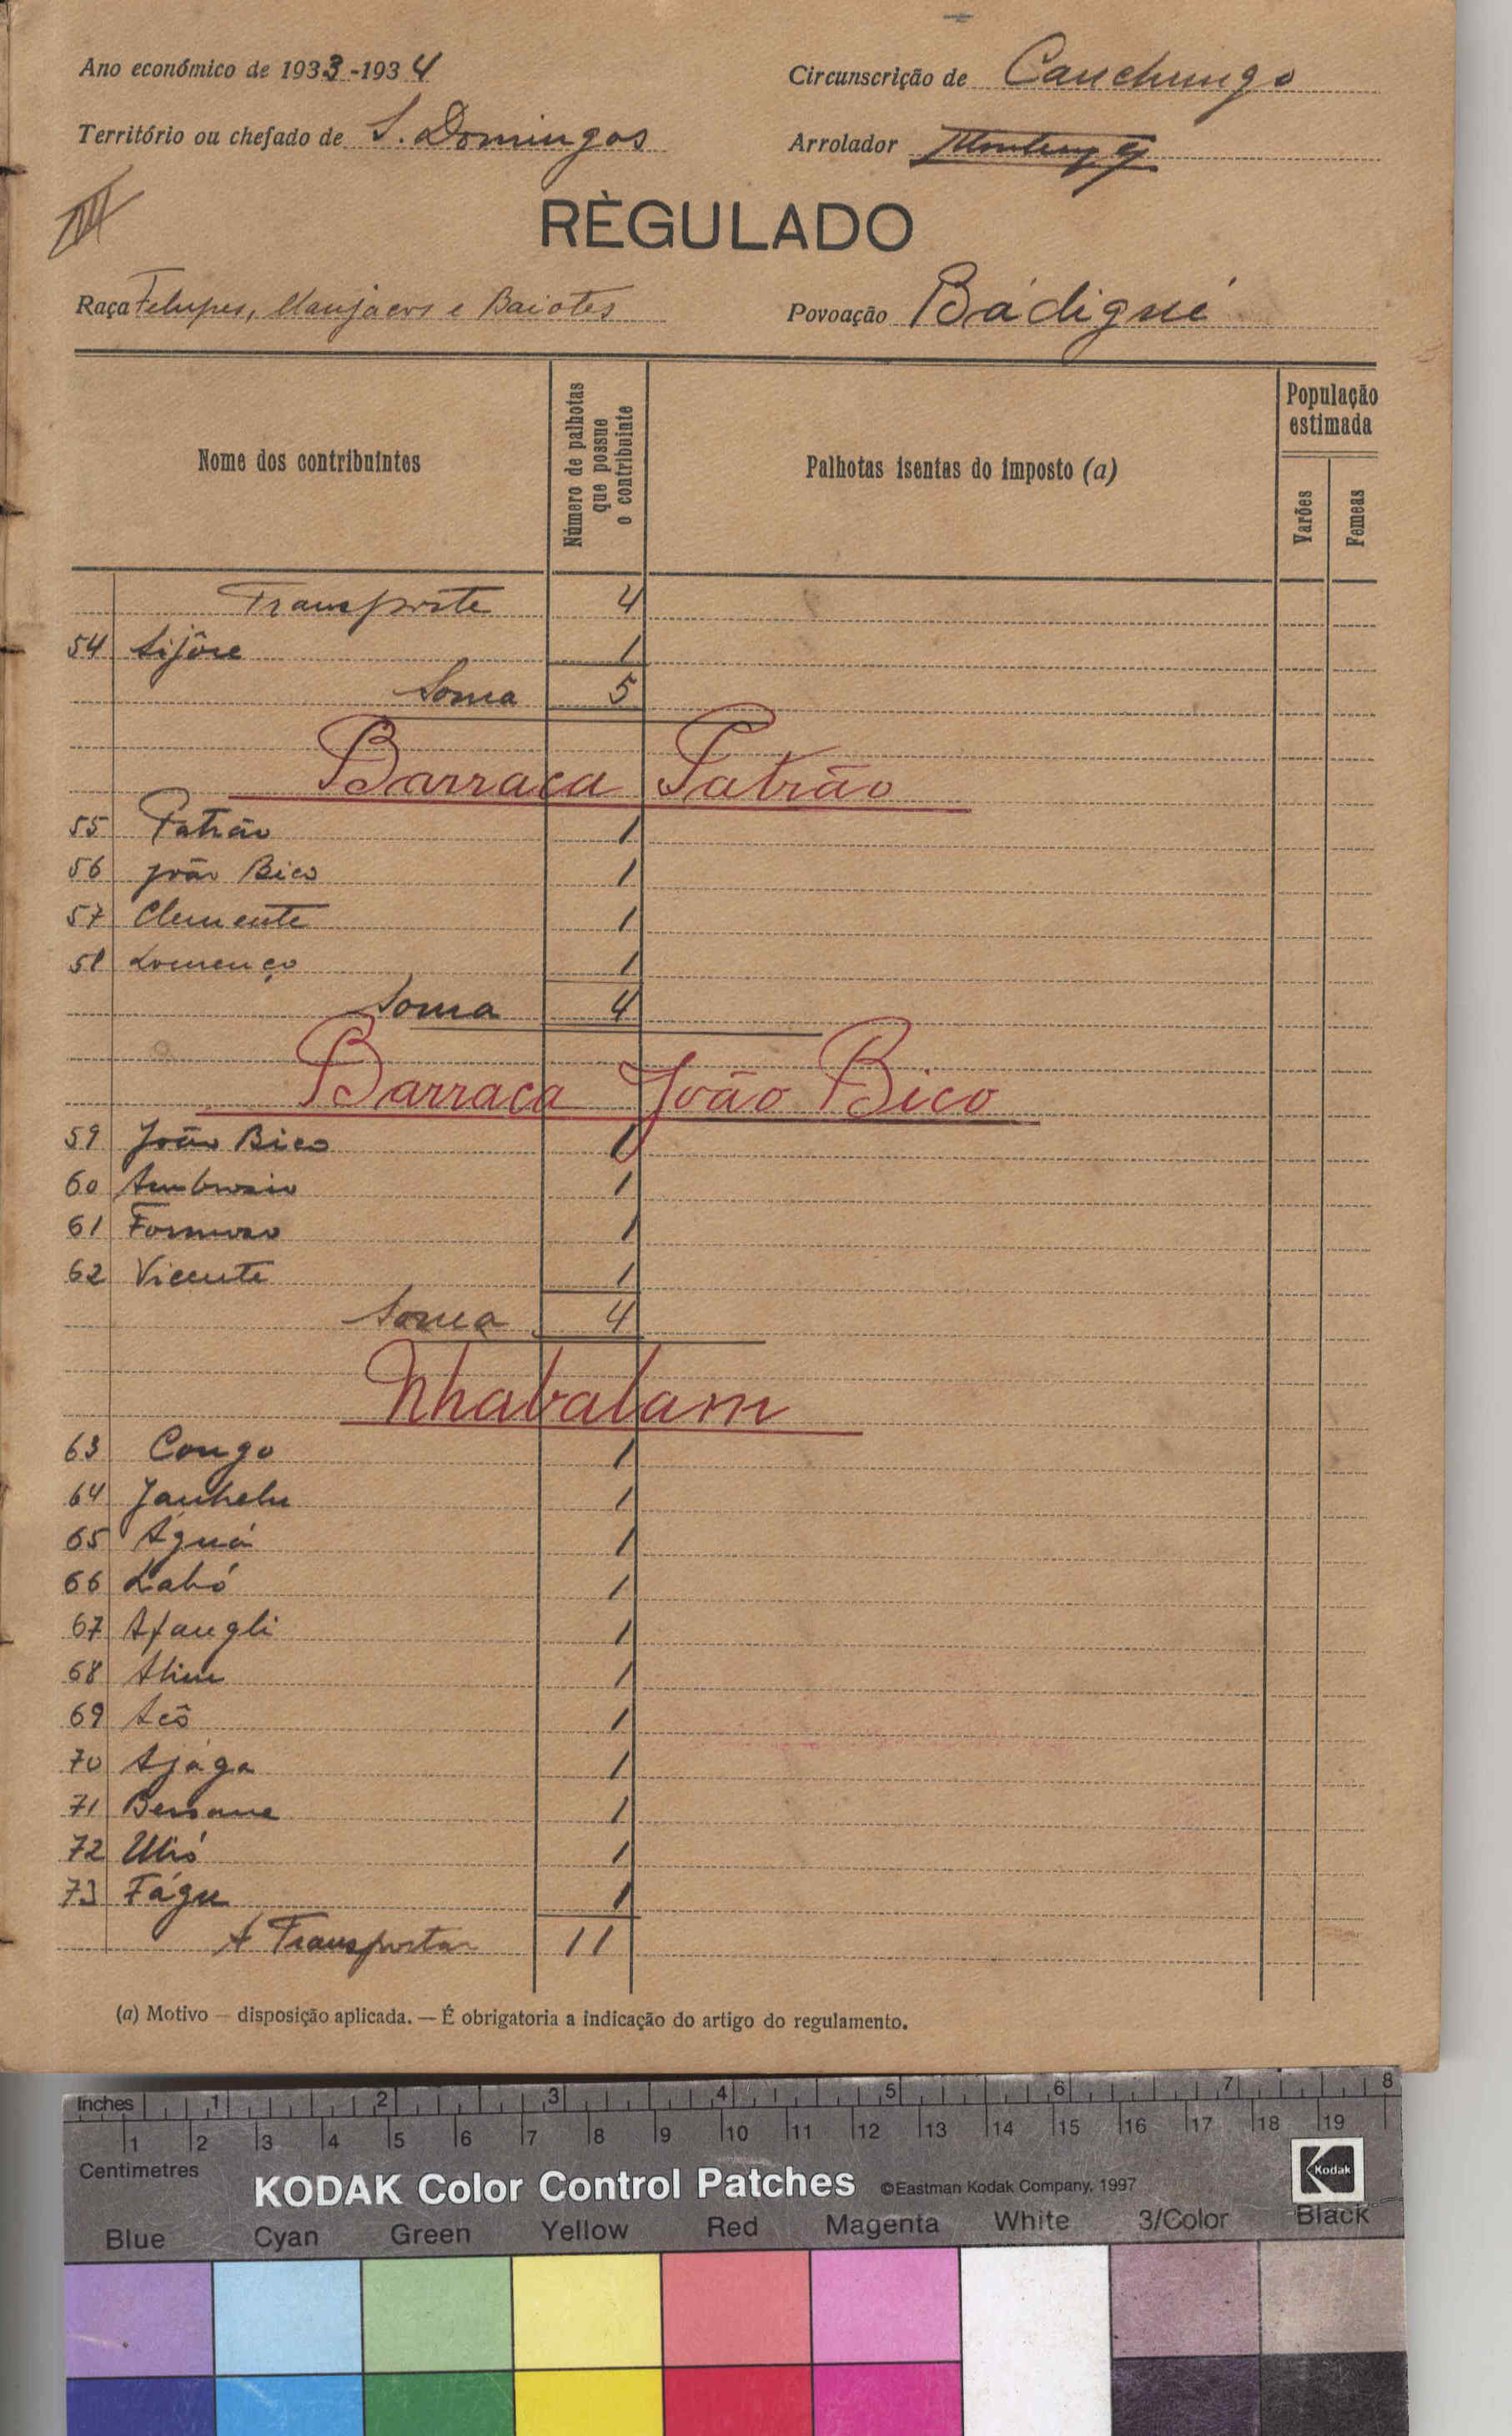 Ano económico de 1933-1934
Circunscrição de Cauchungo
Território ou chefado de S. Domingos
Arrolador
RÈGULADO
Raça Felupes, Manjacos e Baiotes
Povoação Bádigué
Nome dos contribuintes
Número de palhotas que possue o contribuinte
Palhotas isentas do imposto (a)
População estimada
Varões
Femeas
Transporte 4
54 Sijôre 1
Soma 5
Barraca Patrão
55 Patrão 1
56 João Bico 1
57 Clemente 1
58 Lourenço 1
Soma 4
Barraca João Bico
59 João Bico 1
60 Ambrosio 1
61 Formoso 1
62 Vicente 1
Soma 4
Nhabalam
63 Congo 1
64 1
65 Águá 1
66 Labó 1
67 Afangli 1
68 1
69 Acô 1
70 Ajága 1
71 Bessane 1
72 1
73 Fágu 1
A Transportar 11
(a) Motivo — disposição aplicada. — É obrigatoria a indicação do artigo do regulamento.
Inches 1 2 3 4 5 6 7 8
1 2 3 4 5 6 7 8 9 10 11 12 13 14 15 16 17 18 19
Centimetres
KODAK Color Control Patches ©Eastman Kodak Company, 1997
Kodak
Blue Cyan Green Yellow Red Magenta White 3/Color Black